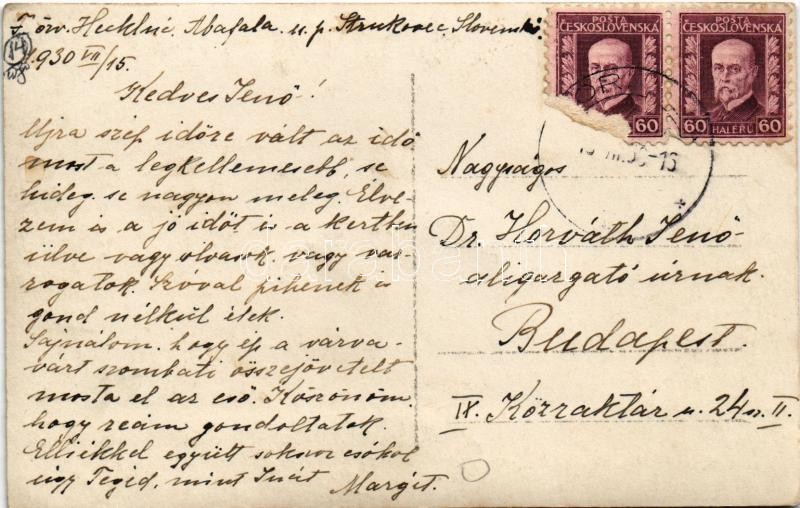 özv. Hecklné, Abafala. u. p. Štrukovec, Slovensko.
930 VII/15.
Kedves Jenő!
Ujra szép időre vált az idő
most a legkellemesebb, se
hideg se nagyon meleg. Élve-
zem is a jó időt és a kertben
ülve vagy olvasok, vagy var-
rogatok. Szóval pihenek és
gond nélkül élek.
Sajnálom, hogy ép a várva-
várt szombati összejövetelt
mosta el az eső. Köszönöm,
hogy reám gondoltatok.
együtt sokszor csókol
úgy Tégid, mint Jucit
Margit.
POŠTA
ČESKOSLOVENSKÁ
60
POŠTA
ČESKOSLOVENSKÁ
60 HALÉŘŮ 60
Nagyságos
Dr. Horváth Jenő
aligazgató úrnak.
Budapest.
IX. Közraktár u. 24 sz. II.
darabanth.com